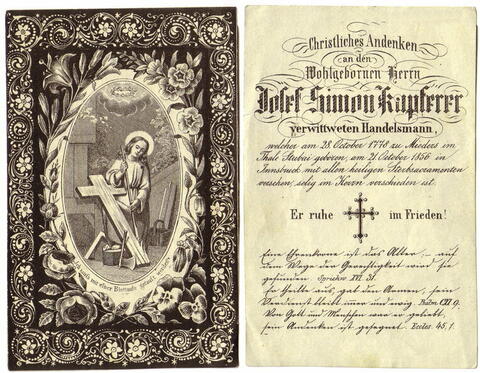 Ich muß mit einer Bluttaufe getauft werden
Christliches Andenken
an den
Wohlgebornen Herrn
Josef Simon Kapferer
verwittweten Handelsmann,
welcher am 28. October 1778 zu Mieders im
Thale Stubai geboren, am 21. October 1856 in
Innsbruck mit allen heiligen Sterbsacramenten
versehen, selig im Herrn verschieden ist.
Er ruhe im Frieden!
Eine Ehrenkrone ist das Alter, – auf
dem Wege der Gerechtigkeit wird sie
gefunden. Sprichw. XVI. 31.
Er theilte aus, gab den Armen, sein
Verdienst bleibt immer und ewig. Psalm. CXI 9.
Von Gott und Menschen war er geliebt,
sein Andenken ist gesegnet. Eccles. 45, 1.